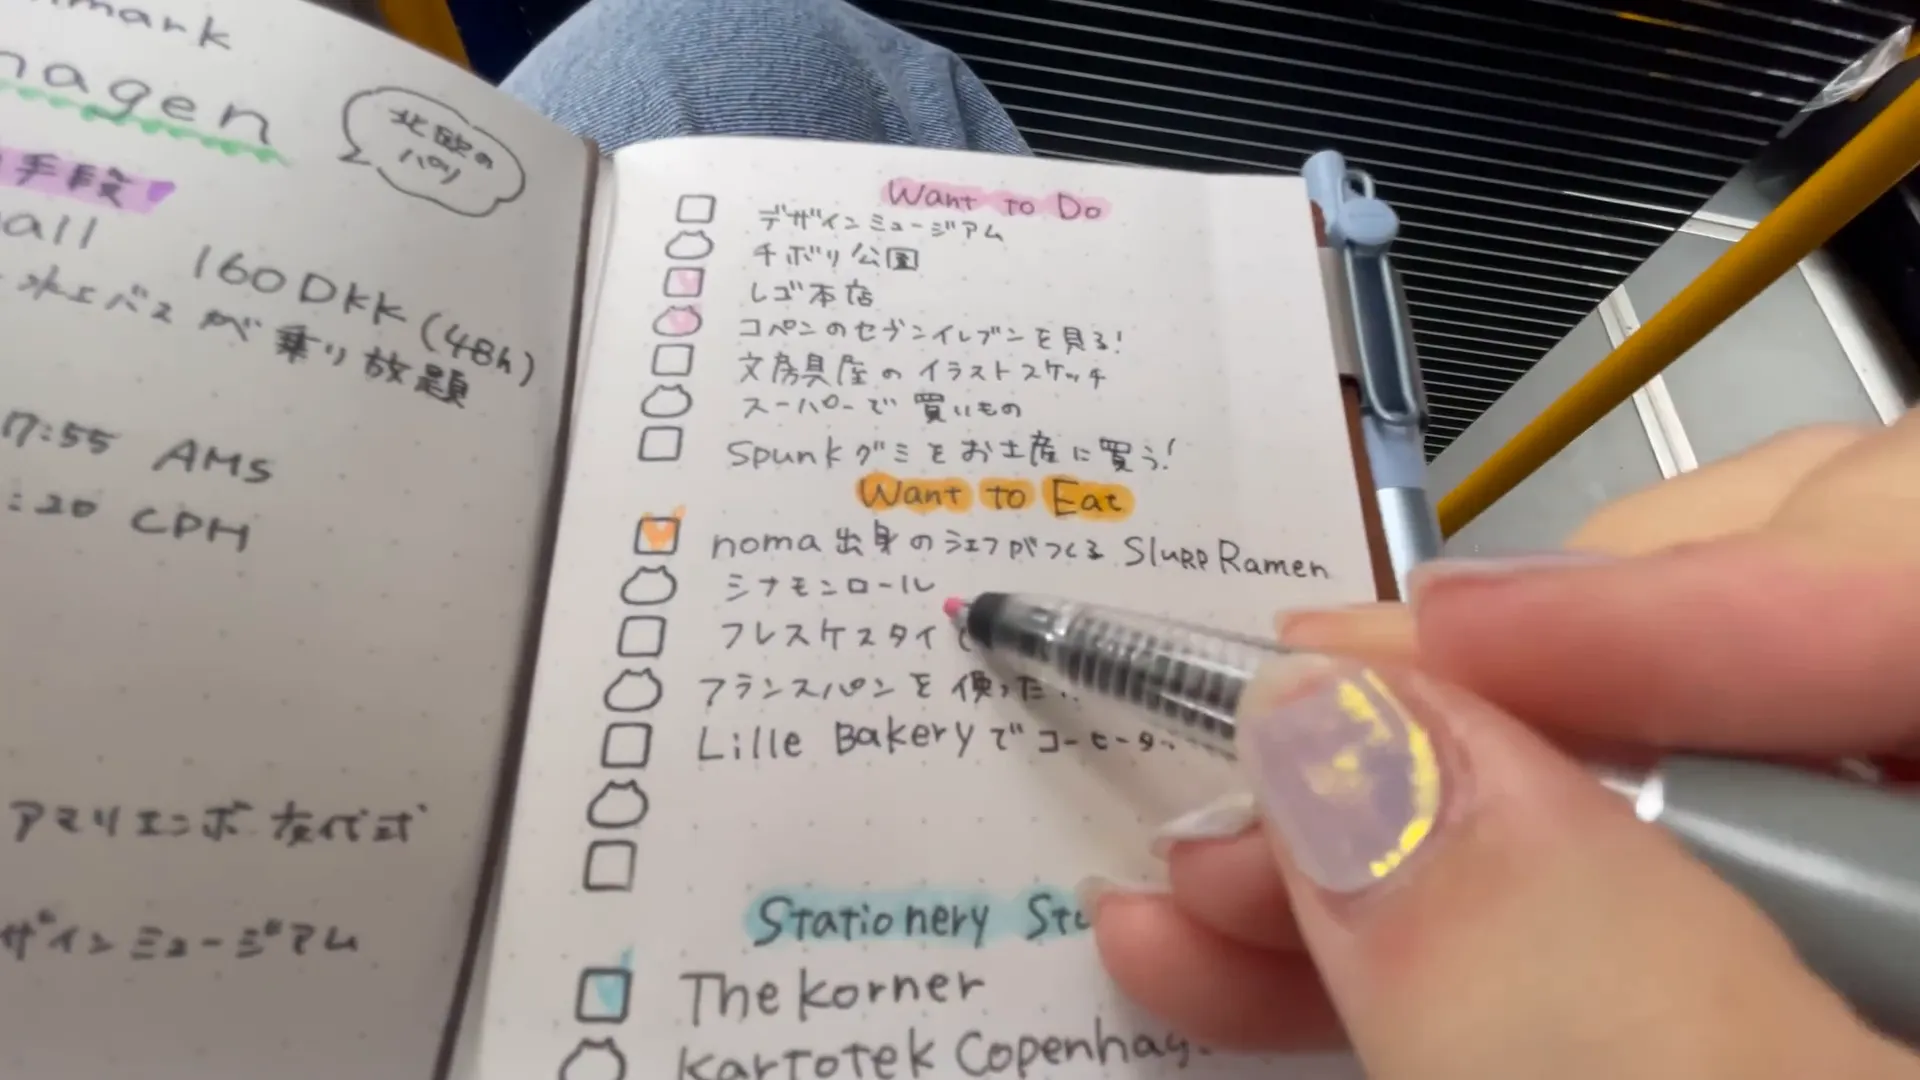 mark
nagen
北欧の
パリ
手段
all 160DKK (48h)
水上バスが乗り放題
17:55 AMS
:20 CPH
アマリエンボー
ザインミュージアム
Want to Do
デザインミュージアム
チボリ公園
レゴ本店
コペンのセブンイレブンを見る!
文房具座のイラストスケッチ
スーパーで買いもの
Spunkグミをお土産に買う!
Want to Eat
noma出身のシェフがつくる Slurp Ramen
シナモンロール
フレスケスタイ
フランスパンを使った
Lille Bakeryでコーヒータ
Stationery
The Korner
Kartotek Copenhag